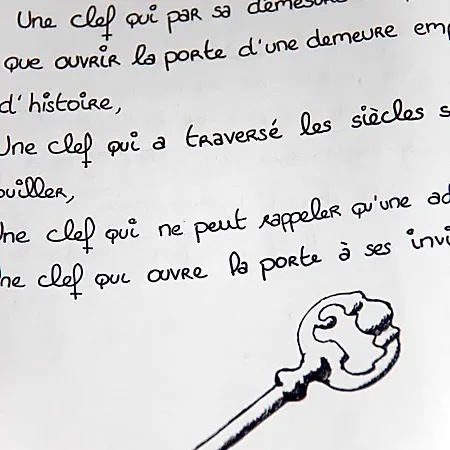 Une clef qui par sa démesure
que ouvrir la porte d'une demeure
d'histoire,
Une clef qui a traversé les siècles
Une clef qui ne peut rappeler qu'une
clef qui ouvre la porte à ses